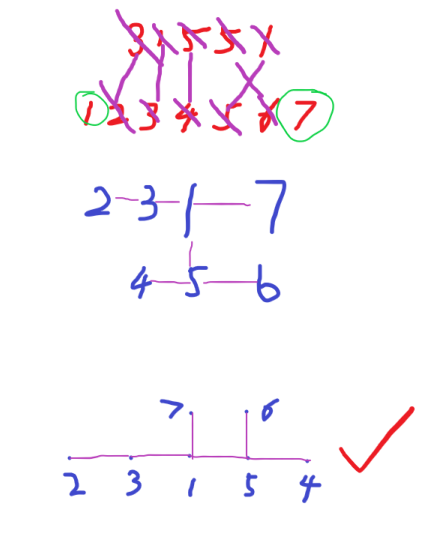 3 1 5 5 1
1 2 3 4 5 6 7
2 3 1 7
4 5 6
7 6
2 3 1 5 4